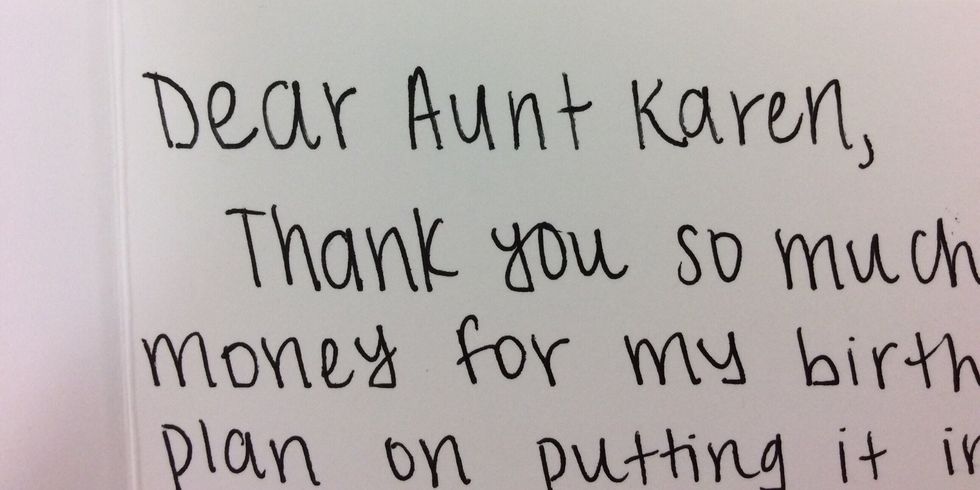 Dear Aunt Karen,
Thank you so much
money for my birth
plan on putting it in